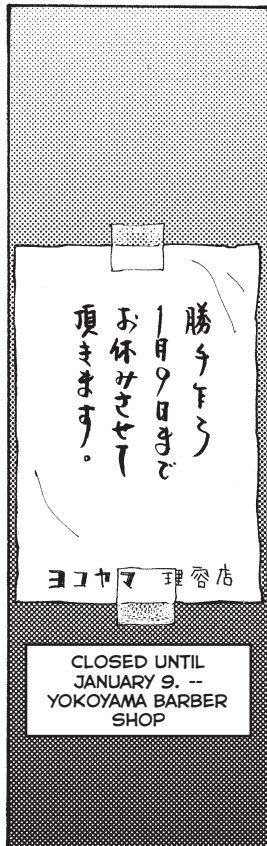 勝手乍ら
1月9日まで
お休みさせて
頂きます。
ヨコヤマ 理容店
CLOSED UNTIL
JANUARY 9. --
YOKOYAMA BARBER
SHOP